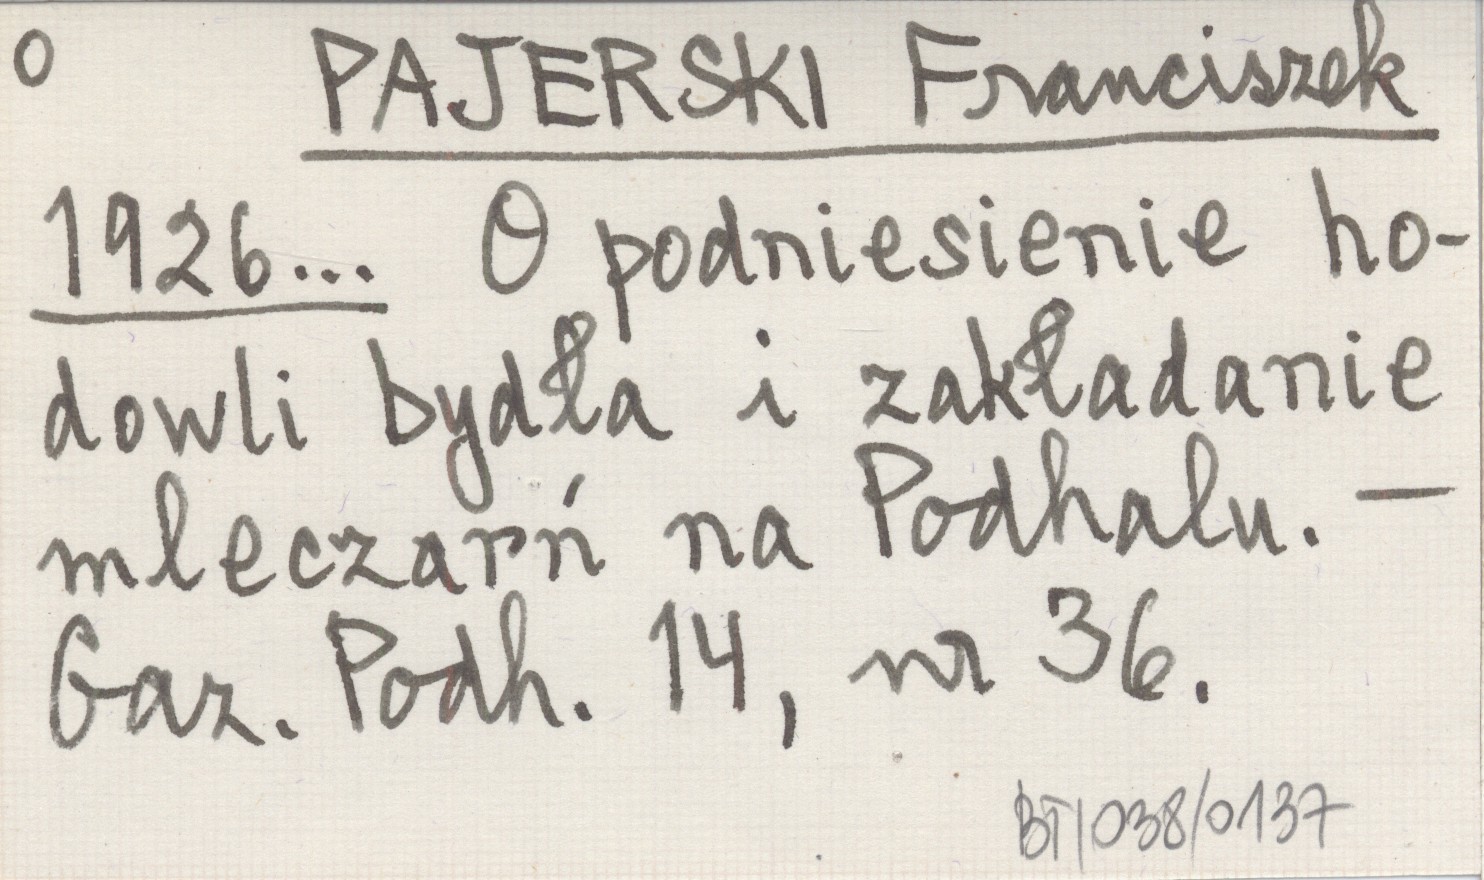 O PAJERSKI Franciszek
1926... O podniesienie ho-
dowli bydła i zakładanie
mleczarń na Podhalu. —
Gaz. Podh. 14, nr 36.
BT/038/0137